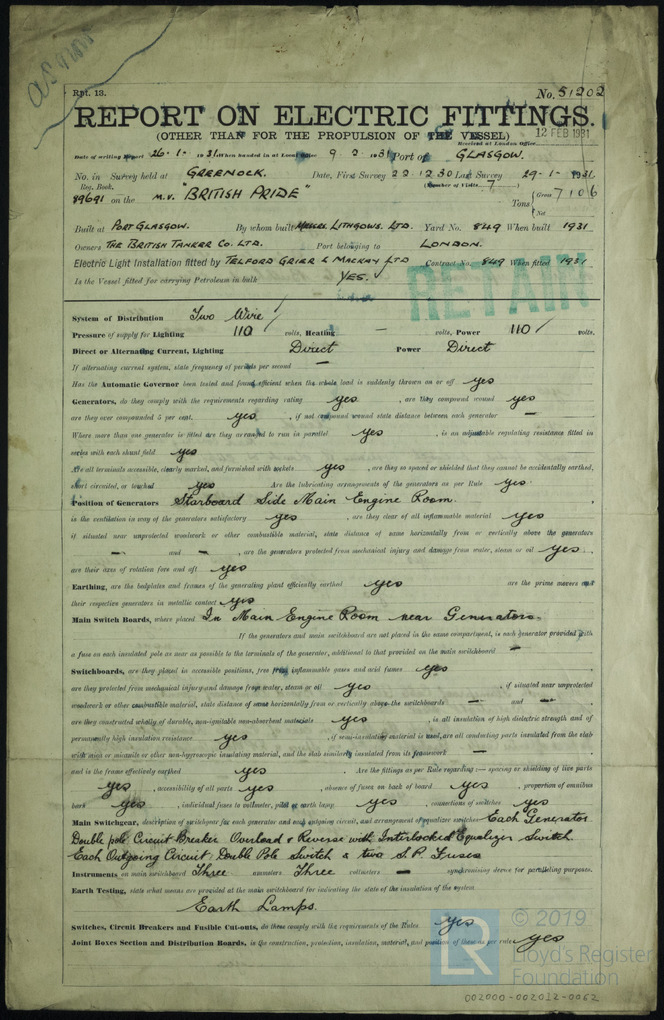 Rpt. 13.
No. 51202
REPORT ON ELECTRIC FITTINGS.
(OTHER THAN FOR THE PROPULSION OF THE VESSEL)
12 FEB 1931
Received at London Office
Date of writing Report 26.1.1931. When handed in at Local Office 9.2.1931 Port of GLASGOW.
No. in Survey held at GREENOCK. Date, First Survey 22.12.30 Last Survey 29.1.1931
Reg. Book. (Number of Visits 7)
89691 on the M.V. "BRITISH PRIDE" Tons { Gross 7106
Net
Built at PORT GLASGOW. By whom built LITHGOWS. LTD. Yard No. 849 When built 1931
Owners THE BRITISH TANKER CO. LTD. Port belonging to LONDON.
Electric Light Installation fitted by TELFORD GRIER & MACKAY LTD Contract No. 849 When fitted 1931
Is the Vessel fitted for carrying Petroleum in bulk YES.
RETAIN
System of Distribution Two Wire
Pressure of supply for Lighting 110 volts, Heating - volts, Power 110 volts.
Direct or Alternating Current, Lighting Direct Power Direct
If alternating current system, state frequency of periods per second -
Has the Automatic Governor been tested and found efficient when the whole load is suddenly thrown on or off yes
Generators, do they comply with the requirements regarding rating yes, are they compound wound yes
are they over compounded 5 per cent. yes, if not compound wound state distance between each generator -
Where more than one generator is fitted are they arranged to run in parallel yes, is an adjustable regulating resistance fitted in
series with each shunt field yes
Are all terminals accessible, clearly marked, and furnished with sockets yes, are they so spaced or shielded that they cannot be accidentally earthed,
short circuited, or touched yes Are the lubricating arrangements of the generators as per Rule yes.
Position of Generators Starboard Side Main Engine Room.
is the ventilation in way of the generators satisfactory yes, are they clear of all inflammable material yes
if situated near unprotected woodwork or other combustible material, state distance of same horizontally from or vertically above the generators
- and -, are the generators protected from mechanical injury and damage from water, steam or oil yes.
are their axes of rotation fore and aft yes
Earthing, are the bedplates and frames of the generating plant efficiently earthed yes are the prime movers and
their respective generators in metallic contact yes
Main Switch Boards, where placed In Main Engine Room near Generators.
If the generators and main switchboard are not placed in the same compartment, is each generator provided with
a fuse on each insulated pole as near as possible to the terminals of the generator, additional to that provided on the main switchboard -
Switchboards, are they placed in accessible positions, free from inflammable gases and acid fumes yes
are they protected from mechanical injury and damage from water, steam or oil yes, if situated near unprotected
woodwork or other combustible material, state distance of same horizontally from or vertically above the switchboards - and -
are they constructed wholly of durable, non-ignitable non-absorbent materials yes, is all insulation of high dielectric strength and of
permanently high insulation resistance yes, if semi-insulating material is used, are all conducting parts insulated from the slab
with mica or micanite or other non-hygroscopic insulating material, and the slab similarly insulated from its framework -
and is the frame effectively earthed yes Are the fittings as per Rule regarding :- spacing or shielding of live parts
yes, accessibility of all parts yes, absence of fuses on back of board yes, proportion of omnibus
bars yes, individual fuses to voltmeter, pilot or earth lamp yes, connections of switches yes
Main Switchgear, description of switchgear for each generator and each outgoing circuit, and arrangement of equalizer switches Each Generator
Double pole Circuit Breaker Overload & Reverse with Interlocked Equalizer Switch
Each Outgoing Circuit Double Pole Switch & two S.P. Fuses
Instruments on main switchboard Three ammeters Three voltmeters - synchronising device for paralleling purposes.
Earth Testing, state what means are provided at the main switchboard for indicating the state of the insulation of the system
Earth Lamps.
Switches, Circuit Breakers and Fusible Cut-outs, do these comply with the requirements of the Rules yes
Joint Boxes Section and Distribution Boards, is the construction, protection, insulation, material, and position of these as per rule yes
LR
© 2019
Lloyd's Register
Foundation
002000-002012-0062